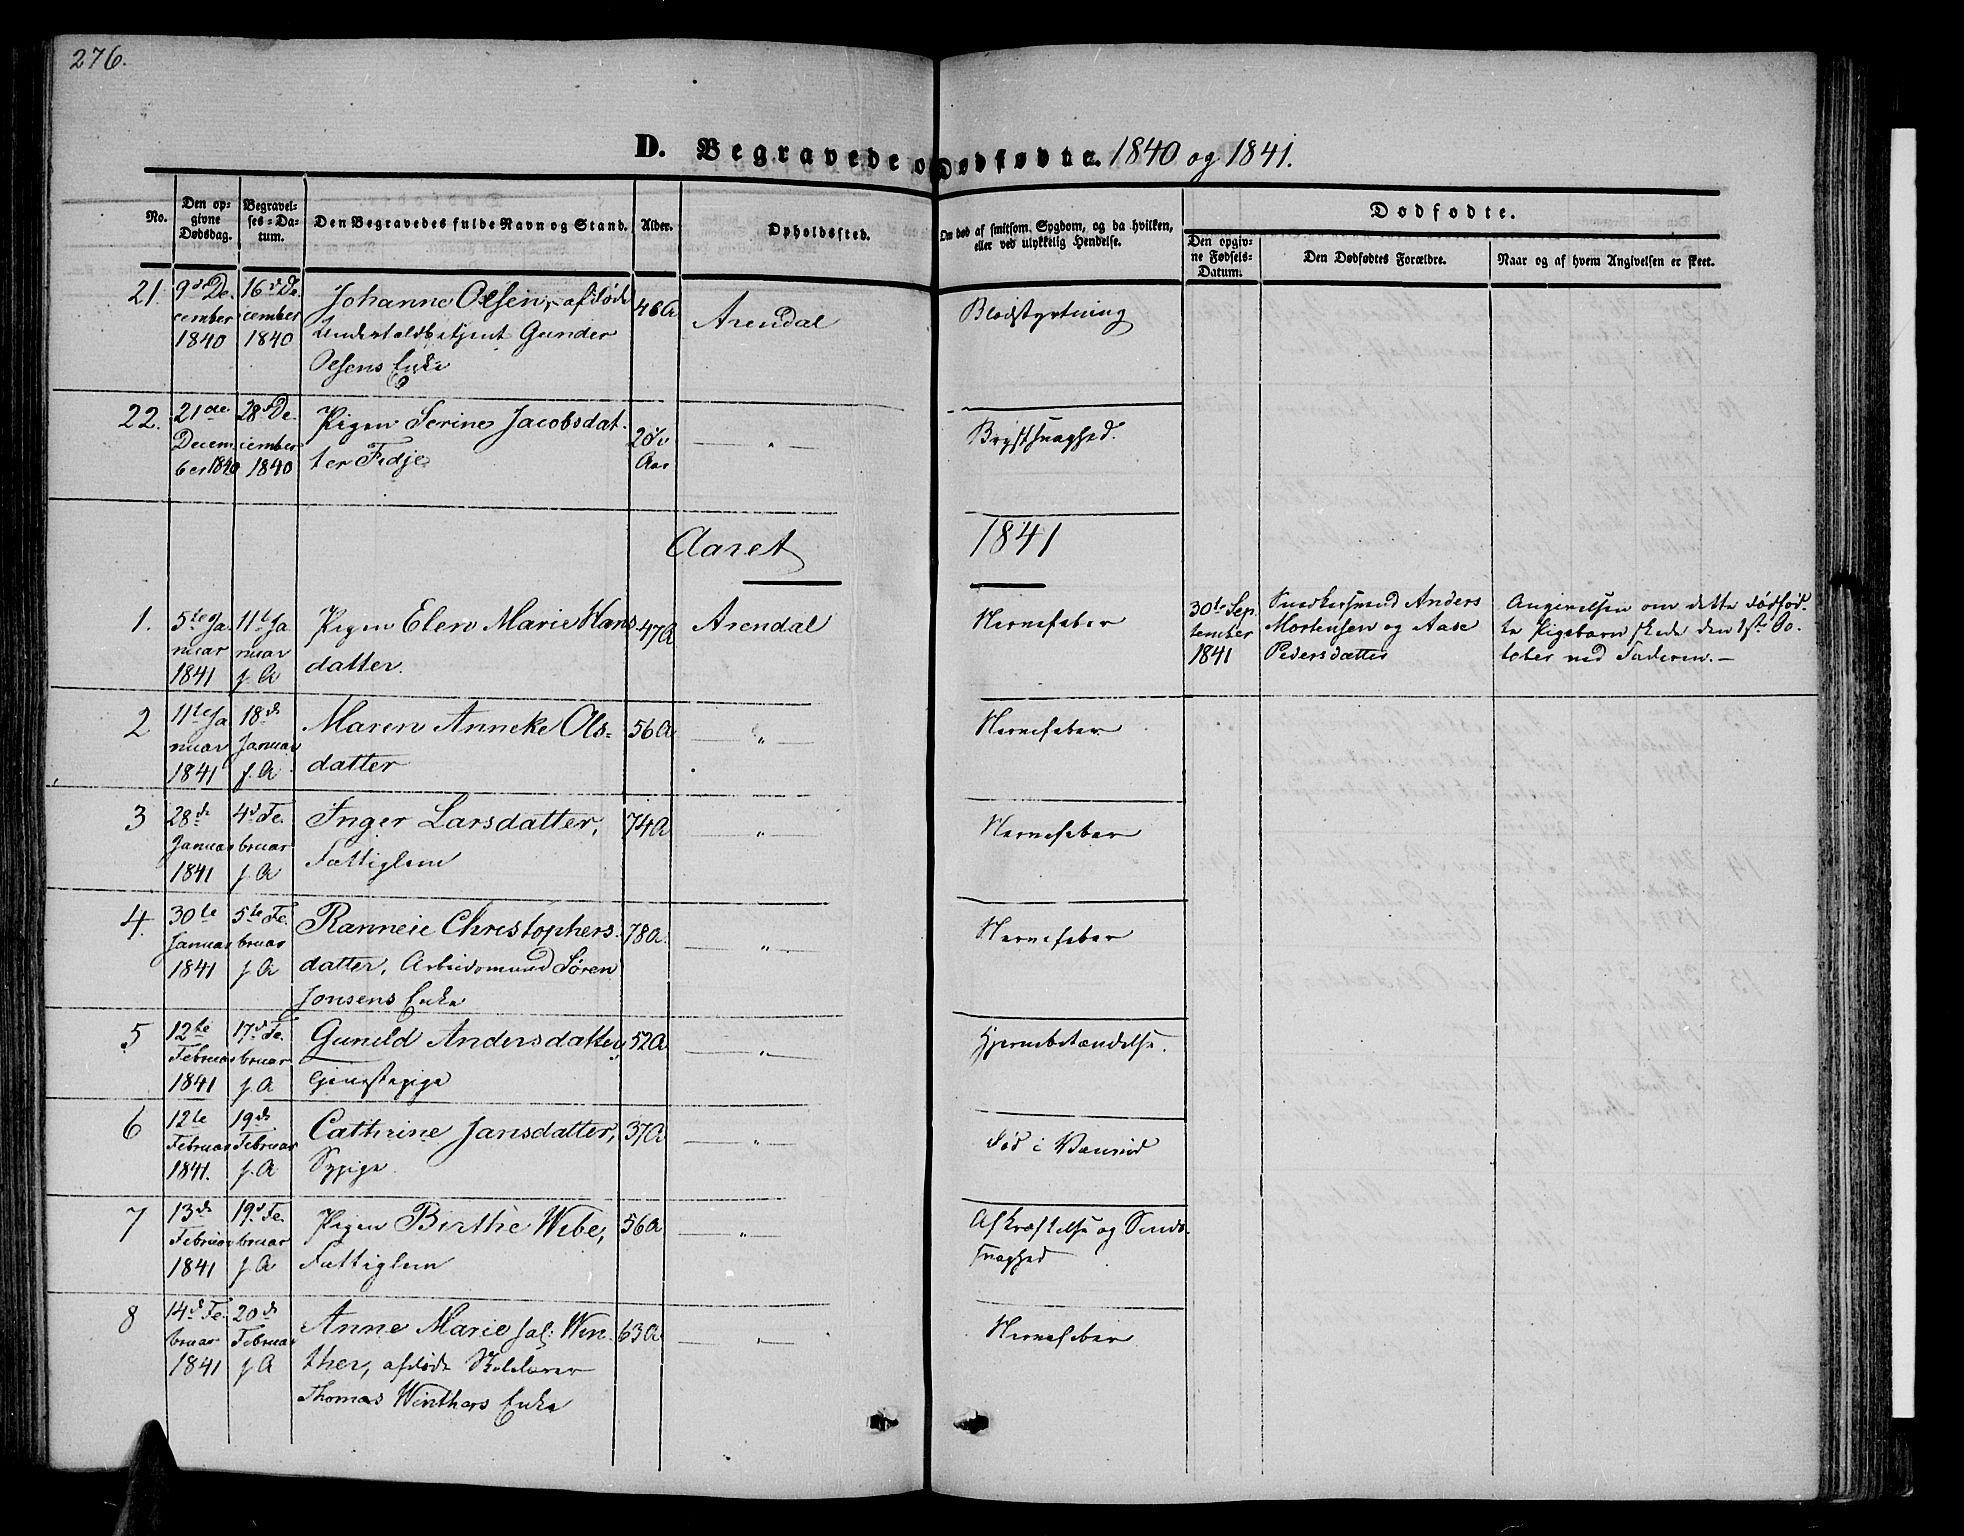 276.
D. Begravede o
Dødfødte. 1840 og 1841.
No.
Den op-
givne
Dødsdag.
Begravel-
ses-Da-
tum.
Den Begravedes fulde Navn og Stand.
Alder.
Opholdssted.
Om død af smitsom. Sygdom, og da hvilken,
eller ved ulykkelig Hendelse.
Dødfødte.
Den opgiv-
ne Fødsels-
Datum.
Den Dødfødtes Forældre.
Naar og af hvem Angivelsen er skeet.
21.
9de De-
cember
1840
16de De-
cember
1840
Johanne Olsen, afdøde
Undertoldbetjent Gunder
Olsens Enke
46 A
Arendal
Blodstyrtning
22.
21de
Decem
ber 1840
28de De-
cember
1840
Pigen Serine Jacobsdat-
ter Fedje
Aar
— " —
Brystsvaghed.
Aaret
1841
1.
5te Ja
nuar
1841
11te Ja
nuar
f. A
Pigen Elen Marie Hans
datter.
47 A
Arendal
Nervefeber
30te Sep
tember
1841
Snedkersvend Anders
Mortensen og Aase
Pedersdatter
Angivelsen om dette dødfød-
te Pigebarn skede den 1ste Oc-
tober ved Faderen. —
2
11te Ja
nuar
1841
18de
Januar
f. A
Maren Anneke Ols-
datter
56 A
— " —
Nervefeber
3
28de
Januar
1841
4de Fe-
bruar
f. A
Inger Larsdatter,
Fattiglem
74 A
— " —
Nervefeber
4.
30te
Januar
1841
5te Fe-
bruar
f. A
Ranneie Christophers-
datter, Arbeidsmand Søren
Jonsens Enke
78 A.
— " —
Nervefeber
5
12te
Februar
1841
17de Fe-
bruar
f. A
Gunild Andersdatter,
Tjenestepige
52 A
— " —
Hjernebetændelse.
6
12te
Februar
1841.
19de
Februar
f. A
Cathrine Jansdatter,
Sypige
37 A
— " —
Død i Vanvid
7
13de
Februar
1841
19de Fe-
bruar
f. A
Pigen Birthe Wibe,
Fattiglem
56 A
— " —
Afkræftelse og Sinds-
svaghed
8
14de Fe-
bruar
1841
20de
Februar
f. A
Anne Marie sal: Win-
ther, afdøde
Thomas Winthers Enke
63 A
— " —
Nervefeber